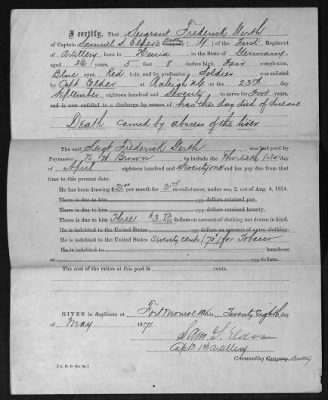 I certify, That Sergeant Frederick Gerth
of Captain Samuel S. Elder's Battery Company (K) of the First Regiment of
Artillery born in in the State of Germany,
aged 36 years, 5 feet 8 inches high, Fair complexion,
Blue eyes, Red hair, and by profession a Soldier was enlisted
by Capt Elder at Raleigh N.C. on the 23rd day
September eighteen hundred and Seventy to serve for Five years,
and is now entitled to a discharge by reason of has this day died of disease
Death caused by abscess of the liver
The said Sergt Frederick Gerth was last paid by
Paymaster N. W. Brown to include the Thirtieth (30) day
of April eighteen hundred and Seventyone and has pay due from that
time to the present date.
He has been drawing $2 00 per month for 2nd re-enlistment, under sec. 2, act of Aug. 4, 1854.
There is due to him dollars retained pay.
There is due to him dollars retained bounty.
There is due to him Three $3 dollars on account of clothing not drawn in kind.
He is indebted to the United States dollars on account of extra clothing.
He is indebted to the United States Seventy cents (70) for Tobacco
He is indebted to laundress
at dollars.
The cost of the ration at this post is cents.
GIVEN in duplicate at Fort Monroe Va. this Twenty Eighth day
of May 1871
Sam. S. Elder
Capt 1st Artillery
Commanding Company Battery
[A. G. O. No. ]